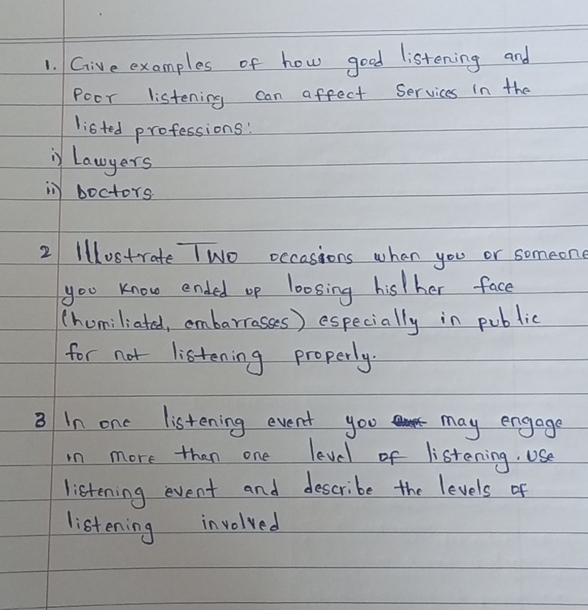 1. Give examples of how good listening and
Poor listening can affect Services in the
listed professions:
i) Lawyers
ii) Doctors
2 Illustrate TWO occasions when you or someone
you know ended up loosing his/her face
(humiliated, embarrasses) especially in public
for not listening properly.
3 In one listening event you may engage
in more than one level of listening. Use
listening event and describe the levels of
listening involved